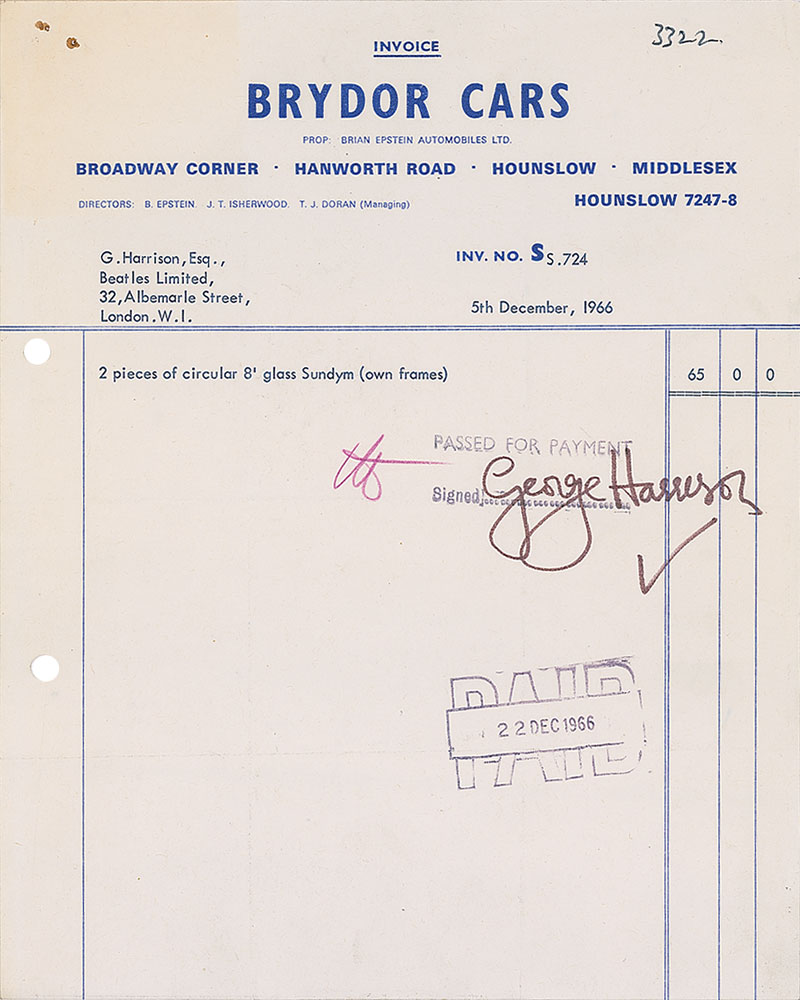 3322.
INVOICE
BRYDOR CARS
PROP: BRIAN EPSTEIN AUTOMOBILES LTD.
BROADWAY CORNER · HANWORTH ROAD · HOUNSLOW · MIDDLESEX
DIRECTORS: B. EPSTEIN. J. T. ISHERWOOD. T. J. DORAN (Managing)
HOUNSLOW 7247-8
G.Harrison,Esq.,
Beatles Limited,
32,Albemarle Street,
London.W.I.
INV. NO. S S.724
5th December, I966
2 pieces of circular 8' glass Sundym (own frames) 65 0 0
PASSED FOR PAYMENT
Signed George Harrison
PAID
22 DEC 1966
PAID